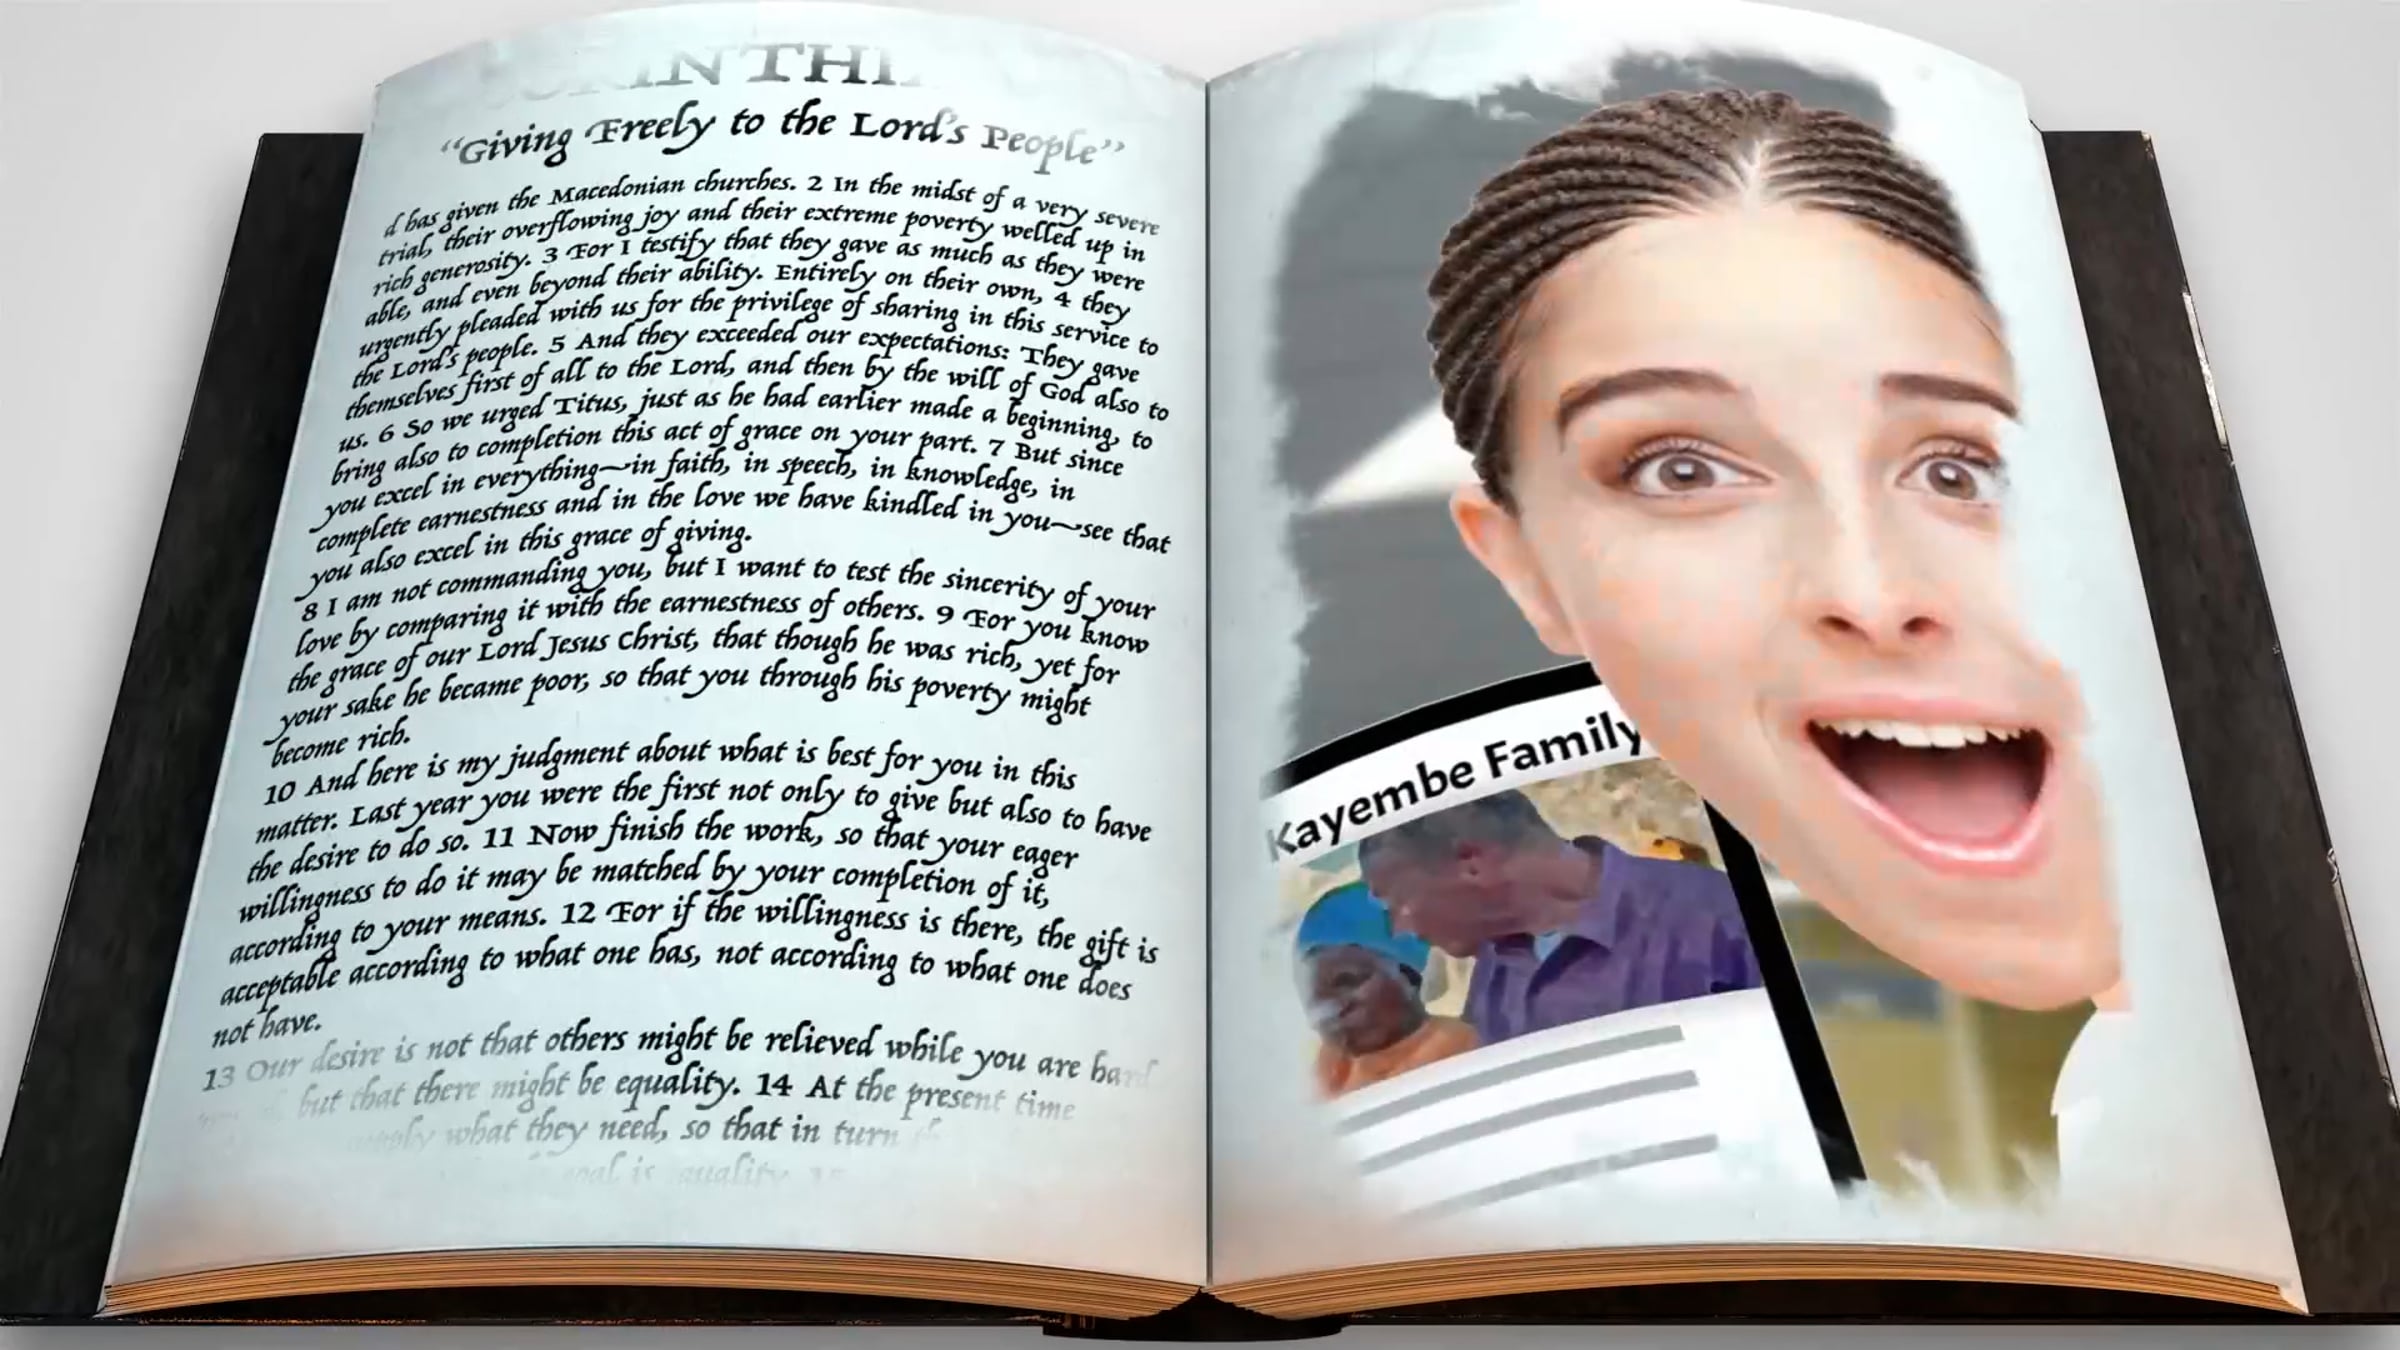 CORINTHI
“Giving Freely to the Lord's People”
d has given the Macedonian churches. 2 In the midst of a very severe
trial, their overflowing joy and their extreme poverty welled up in
rich generosity. 3 For I testify that they gave as much as they were
able, and even beyond their ability. Entirely on their own, 4 they
urgently pleaded with us for the privilege of sharing in this service to
the Lord's people. 5 And they exceeded our expectations: They gave
themselves first of all to the Lord, and then by the will of God also to
us. 6 So we urged Titus, just as he had earlier made a beginning, to
bring also to completion this act of grace on your part. 7 But since
you excel in everything—in faith, in speech, in knowledge, in
complete earnestness and in the love we have kindled in you—see that
you also excel in this grace of giving.
8 I am not commanding you, but I want to test the sincerity of your
love by comparing it with the earnestness of others. 9 For you know
the grace of our Lord Jesus Christ, that though he was rich, yet for
your sake he became poor, so that you through his poverty might
become rich.
10 And here is my judgment about what is best for you in this
matter. Last year you were the first not only to give but also to have
the desire to do so. 11 Now finish the work, so that your eager
willingness to do it may be matched by your completion of it,
according to your means. 12 For if the willingness is there, the gift is
acceptable according to what one has, not according to what one does
not have.
13 Our desire is not that others might be relieved while you are hard
but that there might be equality. 14 At the present time
what they need, so that in turn
goal is equality.
Kayembe Family